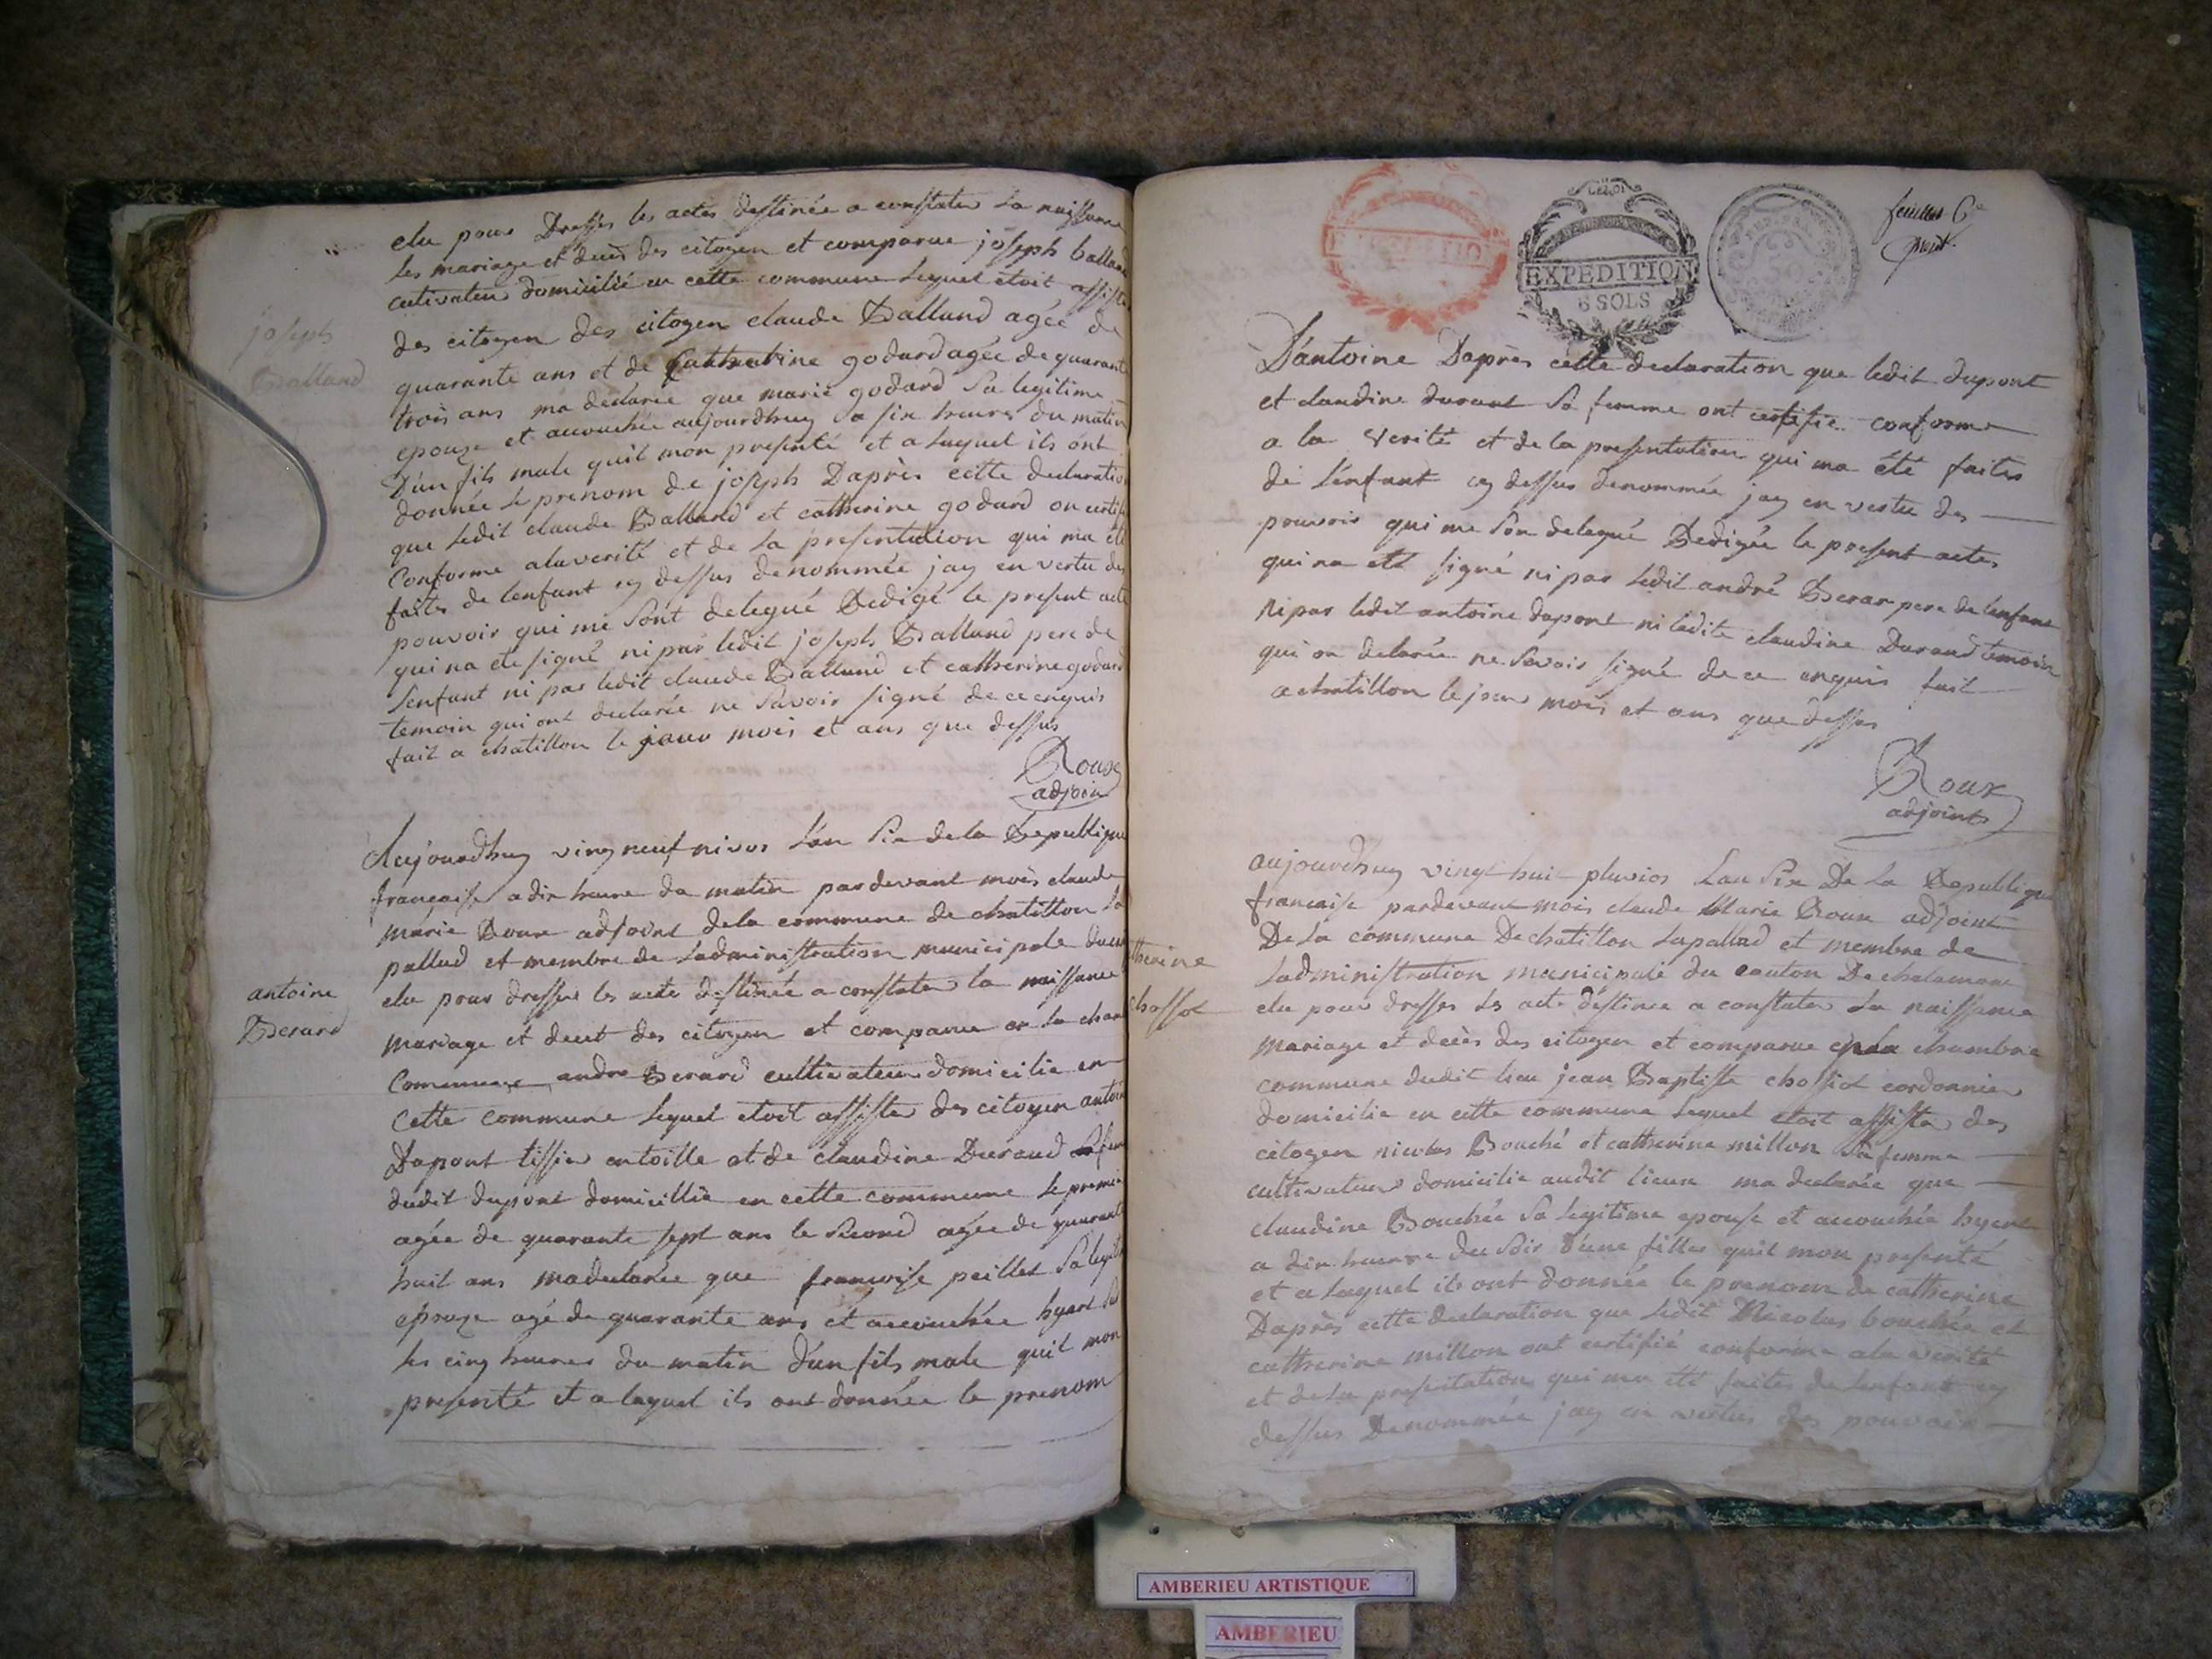 elu pour Dresser les actes destinée a constater La naissance
les mariage et deces des citoyen et comparue joseph balland
cultivateur domicilié en cette commune lequel etoit assisté
des citoyen des citoyen claude Balland agée de
joseph
Balland
quarante ans et de Catherine godard agée de quarante
trois ans ma declarée que marie godard Sa legitime
epouze et accouchée aujourdhuy a six heures du matin
D'un fils male quil mon presenté et a laquel ils ont
donnée le prenom de joseph Daprès cette declaration
que ledit claude Balland et catherine godard on certifié
Conforme alaverité et de La presentation qui ma été
faites de lenfant cy dessus denommée jay en vertu des
pouvoir qui me Sont delegué Redigé le present acte
qui na ete signé ni par ledit joseph Balland pere de
lenfant ni par ledit claude Balland et catherine godard
temoin qui ont declarée ne Savoir signé de ce enquis
fait a chatillon le jour mois et ans que dessus
Roux
adjoin
Aujourdhuy ving neuf nivos Lan Six de la Republique
française a dix heure du matin pardevant mois claude
marie Roux adjoint dela commune de chatillon la
pallud et membre de Ladministration municipale
elu pour dresser les acte destinée a constater la naissance
antoine
Berard
mariage et decet des citoyen et comparue en la cham
Commune andre Berard cultivateur domicilie en
cette commune lequel etoit assister des citoyen antoine
Dupont tissier entoille et de claudine Durand Sa fem
dudit dupont domicillié en cette commune le premier
agée de quarante sept ans le Second agée de quarante
huit ans madeclarée que françoise peillet Sa legit
epouze agé de quarante ans et accouchée hyert
les cinq heures du matin d'un fils male quil mon
presenté et a laquel ils ont donnée le prenom
EXPEDITION
6 SOLS
feuillet 6e
D'antoine Daprès cette declaration que ledit dupont
et claudine durant Sa femme ont certifie conforme
a la verité et de la presentation qui ma été faites
de Lenfant cy dessus denommée jay en vertu des
pouvoir qui me Son delegué Redigée le present actes
qui na eté signé ni par ledit andré Berar pere de lenfant
Ni par ledit antoine dupont ni ladite claudine Durand temoin
qui on delarée ne Savoir signé de ce enquis fait
a chatillon le jour mois et ans que dessus
Roux
adjoint
aujourdhuy vingt huit pluvios Lan Six De La Republique
française pardevant mois claude Marie Roux adjoint
De La commune De chatillon Lapallud et membre de
therine
chossot
Ladministration municipale du canton De chalamont
elu pour dresser Les acte déstinée a constater La naissance
mariage et decès des citoyen et comparue en la chambre
commune dudit lieu jean Baptiste chossot cordonnier
domicilie en cette commune Lequel etoit assister des
citoyen nicolas Bouché et catherine millon Sa femme
cultivateur domicilie audit lieux ma declarée que
claudine Bouchée Sa legitime epouse et accouchée hyere
a dix heure du Soir d'une filles quil mon presenté
et a laquel ils ont donnée le prenom de catherine
Daprès cette declaration que ledit Nicolas bouchée et
catherine millon ont certifié conforme ala verité
et de La presentation qui ma été faites de lenfant cy
dessus Denommée jay en vertus des pouvoir
AMBERIEU ARTISTIQUE
AMBERIEU